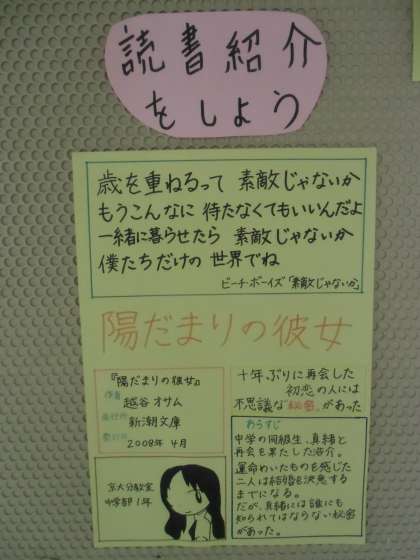 読書紹介
をしよう
歳を重ねるって 素敵じゃないか
もうこんなに 待たなくてもいいんだよ
一緒に暮らせたら 素敵じゃないか
僕たちだけの 世界でね
ビーチ・ボーイズ「素敵じゃないか」
陽だまりの彼女
『陽だまりの彼女』
作者
越谷 オサム
発行所
新潮文庫
発行日
2008年 4月
京大分教室
中学部 1年
十年ぶりに再会した
初恋の人には
不思議な"秘密"があった
あらすじ
中学の同級生、真緒と
再会を果たした浩介。
運命めいたものを感じた
二人は結婚を決意する
までになる。
だが、真緒には誰にも
知られてはならない秘密
があった。